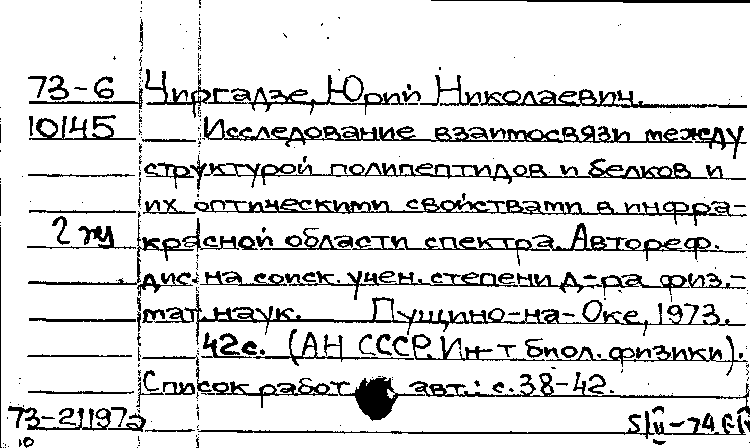 73-6 Чиргадзе, Юрий Николаевич.
10145 Исследование взаимосвязи между
структурой полипептидов и белков и
их оптическими свойствами в инфра-
2 красной области спектра. Автореф.
дис. на соиск. учен. степени д-ра физ.-
мат. наук. Пущино-на-Оке, 1973.
42с. (АН СССР. Ин-т биол. физики).
Список работ авт.: с. 38-42.
73-21197а 5/II-74
10